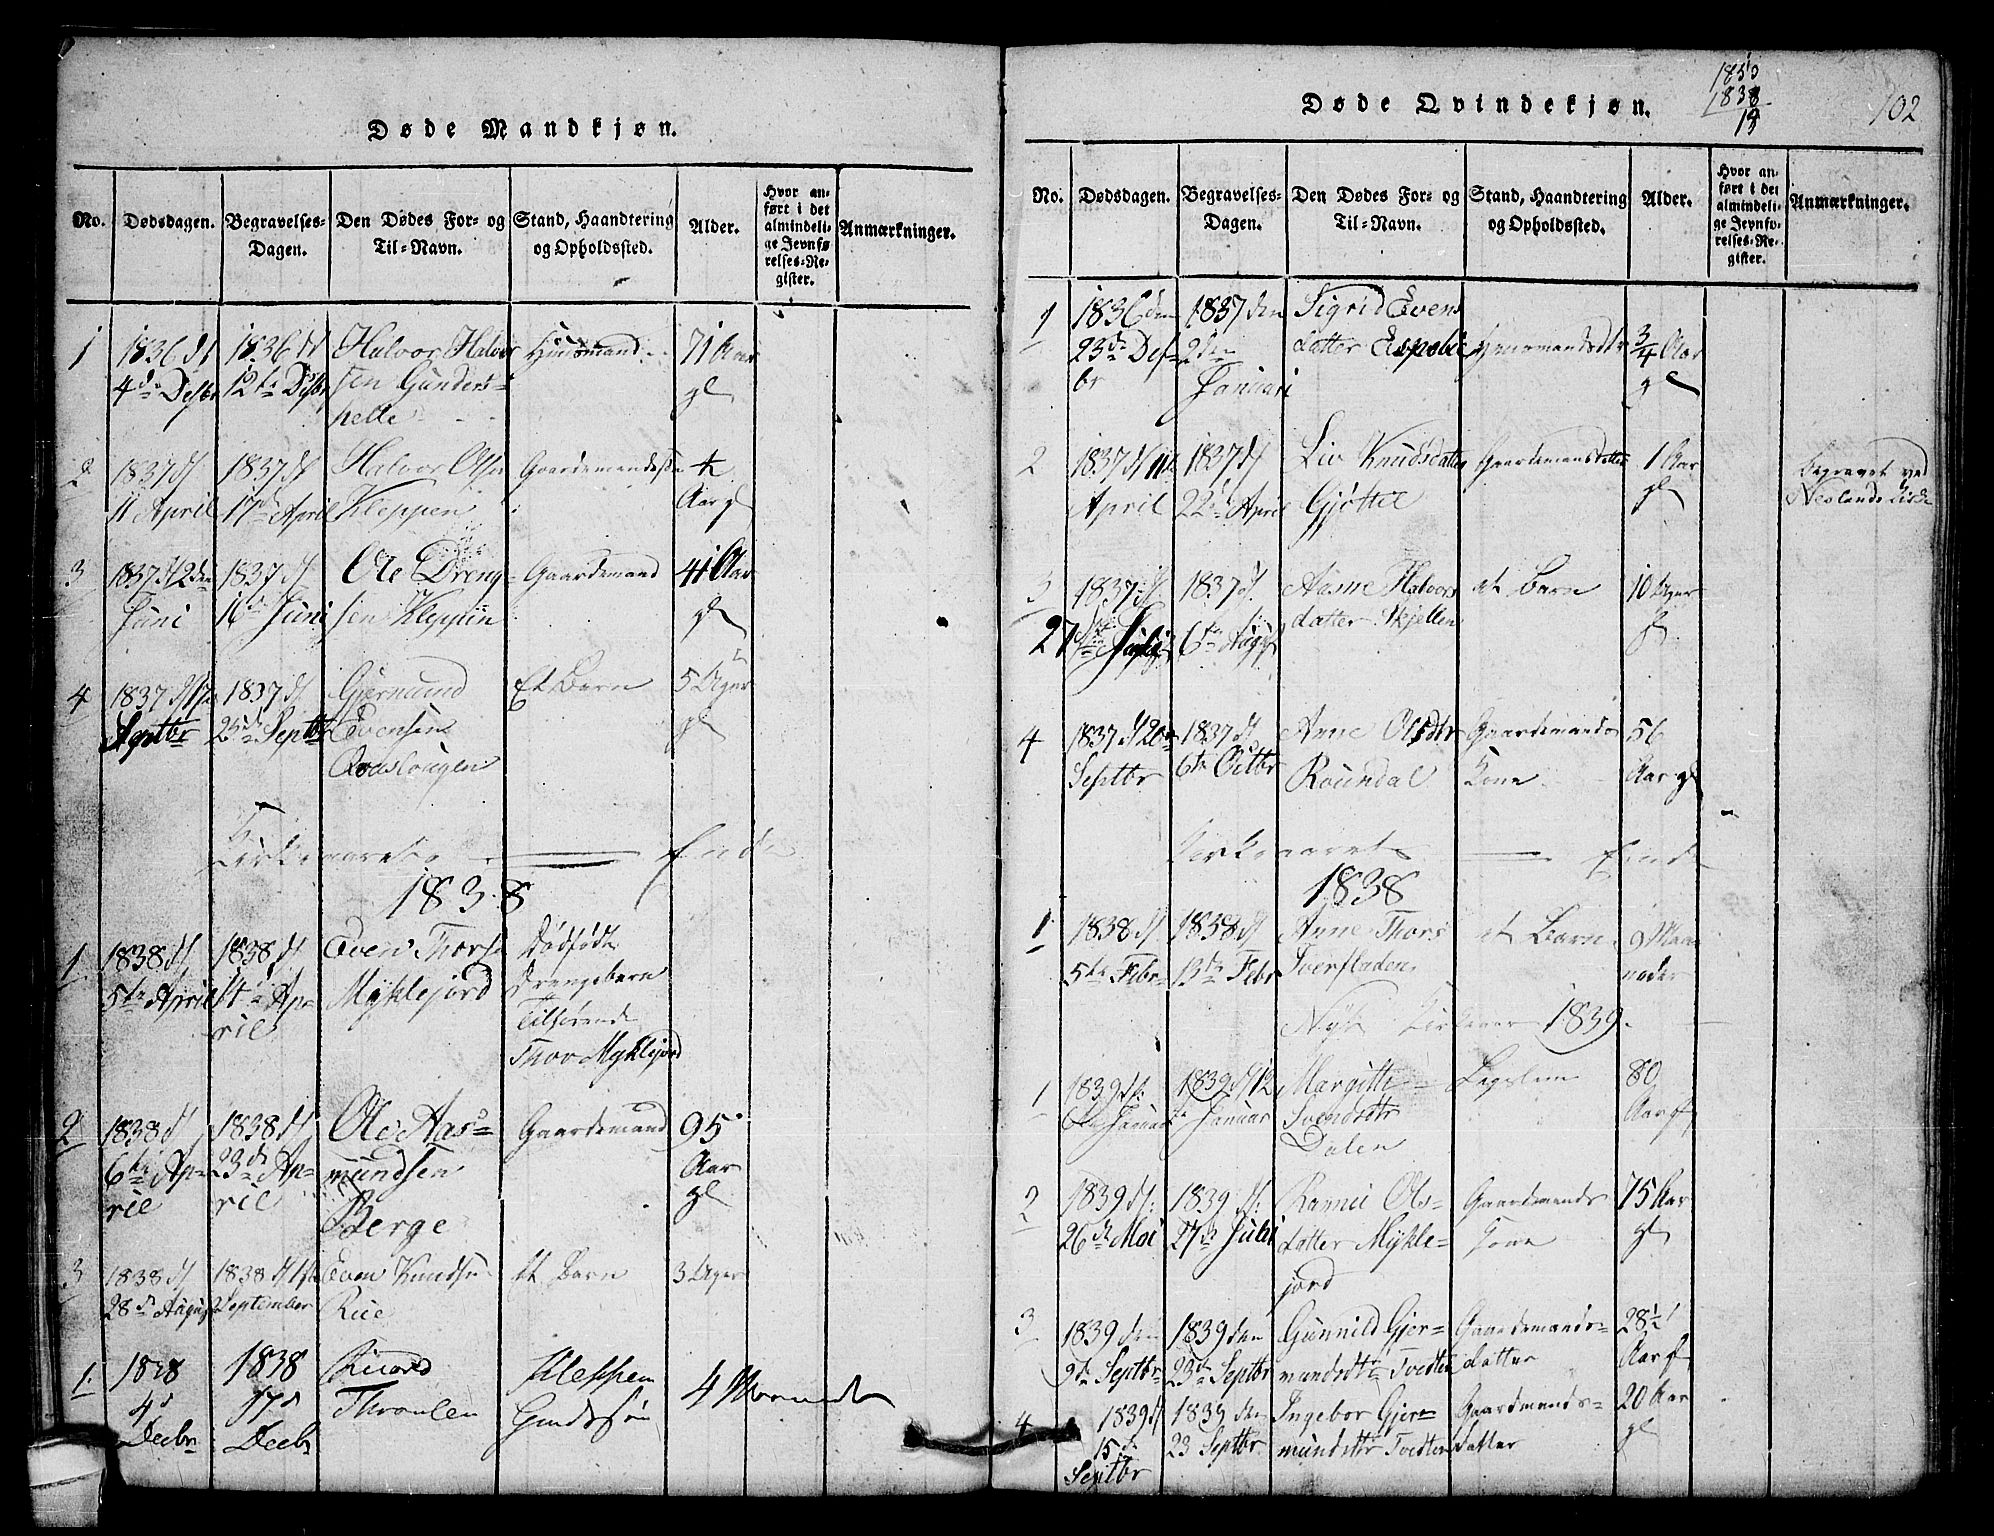 Døde Mandkjøn.
No.
Dødsdagen.
Begravelses-
Dagen.
Den Dødes For- og
Til-Navn.
Stand, Haandtering
og Opholdssted.
Alder.
Hvor an-
ført i det
almindeli-
ge Jevnfø
relses-Re-
gister.
Anmærkninger.
1
1836 dn
4de Desbr
1836 dn
12te Desbr
Halvor Halvor
sen Gunders-
helle
Huusmand
71 Aar
gl
2
1837 dn
11 April
1837 dn
17de April
Halvor Olsen
Kleppen
Aar gl
3
1837 d 2den
Juni
1837 dn
16de Juni
Ole Dreng-
sen Kleppen
Gaardemand
41 Aar
gl
4
1837
Septbr
1837 dn
25de Septbr
Gjermund
Evensen
Et Barn
5 Uger
gl
Kirkeaarets Ende
1838
1
1838 dn
5te April
1838 dn
14de Ap-
ril
Even Thors
Myklejord
Dødfødte
Drengebarn
Tilhørende
Thor Myklejord
2
1838 dn
6te Ap-
ril
1838 dn
23de Ap-
ril
Ole Aas-
mundsen
Berge
Gaardemand
95
Aar
gl
3
1838 dn
28de August
1838 dn 1ste
September
Even Knudsen
Rue
et Barn
3 Uger
1.
1838
4d
Decbr
1838
17d
Decb
Kleppen
4
Døde Qvindekjøn.
1853
1838
15
102
No.
Dødsdagen.
Begravelses-
Dagen.
Den Dødes For- og
Til-Navn.
Stand, Haandtering
og Opholdssted.
Alder.
Hvor an-
ført i det
almindeli-
ge Jevnfø-
relses-Re-
gister.
Anmærkninger.
1
1836 den
23de Des-
br
1837 den
2den
Januari
Sigrid Evens
datter Espelie
Huusmandsdtr
3/4 Aar
gl
2
1837 dn 11te
April
1837 dn
22de April
Liv Knudsdatter
Gjøttel
Gaardemandsdatter
1 Aar
gl
begravet ved
Neslands Kirke
3
1837 dn
27 Juli
1837 dn
6te Augst
Aasne Halvors
datter Skjellen
et Barn
10 Uger
gl
4
1837 dn 20de
Septbr
1837 dn
6te Octbr
Anne Olsdtr
Roundal
Gaardemands
Kone
56
Aar gl
Kirkeaarets Ende
1838
1
1838 dn
5te Febr
1838 dn
13de Febr
Anne Thors
Tverstaden
et Barn
9 Maa
neder
Nyt Kirkeaar 1839.
1
1839 dn:
6te Januar
1839 dn 12
te Januar
Margitte
Svendsdtr
Dalen
Legslem
80
Aar gl
2
1839 dn:
26de Mai
1839 dn:
27de Juli
Ols-
datter Mykle-
jord
Gaardemands
Kone
75 Aar
gl
3
1839 den
9de Septbr
1839 den
23de Septbr
Gunnild Gjer-
mundsdtr Tvedten
Gaardemands-
datter
28 1/2
Aar gl
4
1839 dn
15de
Septbr
1839 den
23 Septbr
Ingebor Gjer-
mundsdtr Tvedten
Gaardmands-
datter
20 Aar
gl